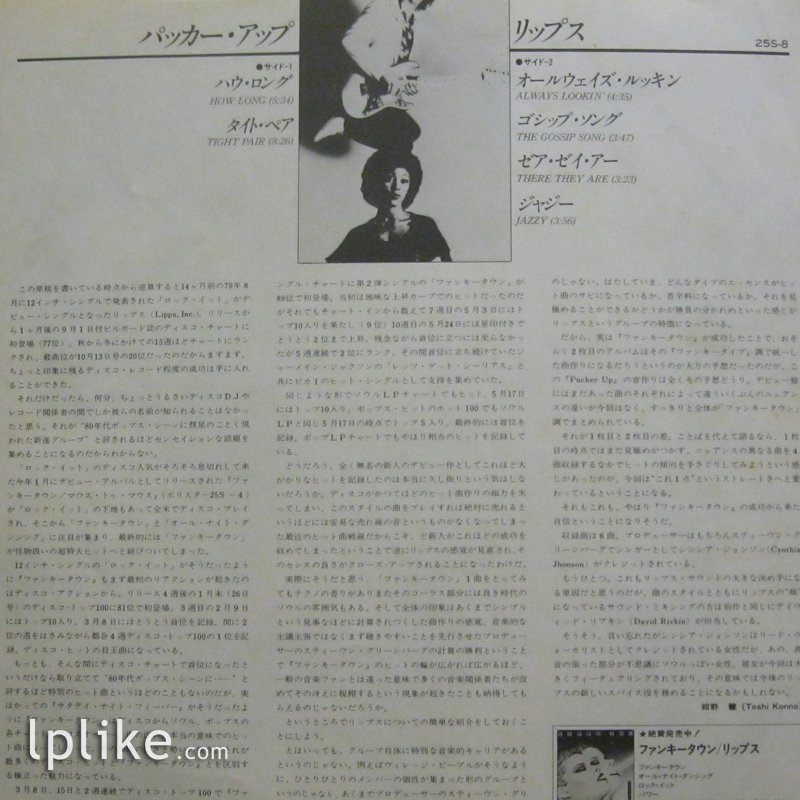 パッカー・アップ
リップス
25S-8
●サイド-1
ハウ・ロング
HOW LONG (5:34)
タイト・ペア
TIGHT PAIR (8:26)
●サイド-2
オールウェイズ・ルッキン
ALWAYS LOOKIN' (4:35)
ゴシップ・ソング
THE GOSSIP SONG (3:47)
ゼア・ゼイ・アー
THERE THEY ARE (3:23)
ジャジー
JAZZY (3:56)
この原稿を書いている時点から逆算すると14ヶ月前の79年8
月に12インチ・シングルで発表された「ロック・イット」がデ
ビュー・シングルとなったリップス (Lipps, Inc.)。リリースか
ら1ヶ月後の9月1日付ビルボード誌のディスコ・チャートに
初登場 (77位)。秋から冬にかけての15週ほどチャートにラン
クされ、最高位が10月13日号の20位だったのだからまずまず。
ちょっと印象に残るディスコ・レコード程度の成功は手に入れ
ることができた。
それだけだったら、何分、ちょっとうるさいディスコDJや
レコード関係者の間でしか彼らの名前が知られることはなかっ
たと思う。それが"80年代ポップス・シーンに彗星のごとく現
われた新進グループ"と評されるほどセンセイションな話題を
集めることになるのだからわからない。
「ロック・イット」のディスコ人気がそろそろ息切れして来
た今年1月にデビュー・アルバムとしてリリースされた「ファ
ンキータウン/マウス・トゥ・マウス」(ポリスター25S-4)
が「ロック・イット」の下地もあって全米でディスコ・プレイ
され、そこから「ファンキータウン」と「オール・ナイト・ダ
ンシング」に注目が集まり、最終的には「ファンキータウン」
が怪物扱いの超特大ヒットへと結びついてしまった。
12インチ・シングルの「ロック・イット」がそうだったよう
に『ファンキータウン』もまず最初のリアクションが起きたの
はディスコ・アクションから。リリース4週後の1月末 (26日
号) のディスコ・トップ100に81位で初登場、3週目の2月9日
にはトップ10入り、3月8日にはとうとう首位を記録。間に2
位の週をはさみながら都合4週ディスコ・トップ100の1位を記
録、ディスコ・ヒットの目玉曲になっている。
もっとも、そんな間にディスコ・チャートで首位になったと
いうだけなら取り立てて"80年代ポップス・シーンに……"と
評するほど特別のヒット曲というほどのこともないのだが、実
はかつての『サタデイ・ナイト・フィーバー』がそうだったよ
3月8日、15日と2週連続でディスコ・トップ100で『ファ
ングル・チャートに第2弾シングルの「ファンキータウン」が
89位で初登場。当初は地味な上昇カーブでのヒットだったのだ
がそれでもチャート・インから数えて7週目の5月3日にはト
ップ10入りを果たし (9位) 10週目の5月24日には星印付きで
とうとう2位まで上昇、残念ながら首位に立つには至らなかっ
たが5週連続で2位にランク。その間首位に立ち続けていたジ
ャーメイン・ジャクソンの「レッツ・ゲット・シーリアス」と
共にピカ1のヒット・シングルとして支持を集めていた。
同じような形でソウルLPチャートでもヒット。5月17日
にはトップ10入り、ポップス・ヒットのホット100でもソウル
LPと同じ5月17日の時点でトップ5入り、最終的には首位を
記録、ポップLPチャートでもやはり相当のヒットを記録して
いる。
どうだろう。全く無名の新人のデビュー作としてこれほど大
がかりなヒットを記録したのは本当に久し振りという気はしな
いだろうか。ディスコがかつてほどのヒット曲作りの磁力を失
ってしまい、このスタイルの曲をプレイすれば絶対に売れると
いうほどには安易な売れ線の音というものがなくなってしまっ
た最近のヒット曲戦線だからこそ、ど新人かこれほどの成功を
収めてしまったということで逆にリップスの感覚が見直され、そ
のセンスの良さがクローズ・アップされることになったわけだ。
実際にそうだと思う。「ファンキータウン」1曲をとってみ
てもテクノの香りがありまたそのコーラス部分には良き時代の
ソウルの雰囲気もある。そして全体の印象はあくまでシンプル
という見事なほどに計算されつくした曲作りの感覚。音楽的な
主義主張ではなくまず聴きやすいことを先行させたプロデュー
サーのスティーヴン・グリーンバーグの計算の勝利ということ
で『ファンキータウン』のヒットの輪が広がれば広がるほど、
一般の音楽ファンとは違った意味で多くの音楽関係者たちが改
めてその冴えに脱帽するという現象が起きたことも納得しても
らえるのじゃないだろうか。
というところでリップスについての簡単な紹介をしておくこ
とにしよう。
とはいっても、グループ自体に特別な音楽的キャリアがある
というのじゃない。例えばヴィレッジ・ピープルがそうなよう
に、ひとりひとりのメンバーの個性が集まった形のグループと
いうのじゃなく、あくまでプロデューサーのスティーヴン・グリ
のじゃない。はたしていま、どんなタイプのエッセンスがヒッ
ト曲のサビになっているか、香辛料になっているか、それを見
極めることができるかどうかが勝負の分かれめといった感じが
リップスというグループの特徴になっている。
だから、実は『ファンキータウン』が成功したことで、おそ
らく2枚目のアルバムはその『ファンキータイプ』調で統一し
た曲作りになるだろうというのが大方の予想だったのだが、こ
の"Pucker Up"の音作りは全くその予想どうり、デビュー盤
にはまだあった曲のそれぞれによって違ういくぶんのニュアン
スの違いが今回はなく、すっきりと全体が『ファンキータウン』
調でまとめられている。
それが1枚目と2枚目の差。ことばを代えて語るなら、1枚
目の時点ではまだ見極めがつかず、ニュアンスの異なる曲を4
曲収録するなかでヒットの傾向を手さぐりしてみようという感
じがあったのが、今回は"これ1点"というストレートさへと変
わっているということになる。
それもこれも、やはり『ファンキータウン』の成功から来た
自信ということになりそうだ。
収録曲は6曲、プロデューサーはもちろんスティーヴン・グ
リーンバーグでシンガーとしてシンシア・ジョンソン (Cynthia
Jhonson) がクレジットされている。
もうひとつ、これもリップス・サウンドの大きな決め手にな
る原因だと思うのだが、曲のスタイルとともにリップスの"顔"
になっているサウンド・ミキシングの方は前作と同じにデイヴ
ィッド・リブキン (David Rivkin) が担当している。
そうそう、言い忘れたがシンシア・ジョンソンはリード・ヴ
ォーカリストとしてクレジットされている女性だが、あの、高
音の張った部分が不思議にソウルっぽい女性、彼女が今回は大
きくフィーチュアリングされており、その意味では今後のリッ
プスの新しいスパイス役を務めることになるかもしれない。
紺野 慧 (Toshi Konno)
★絶賛発売中!
ファンキータウン/リップス
ファンキータウン
オール・ナイト・ダンシング
ロック・イット
パワー
lplike.com